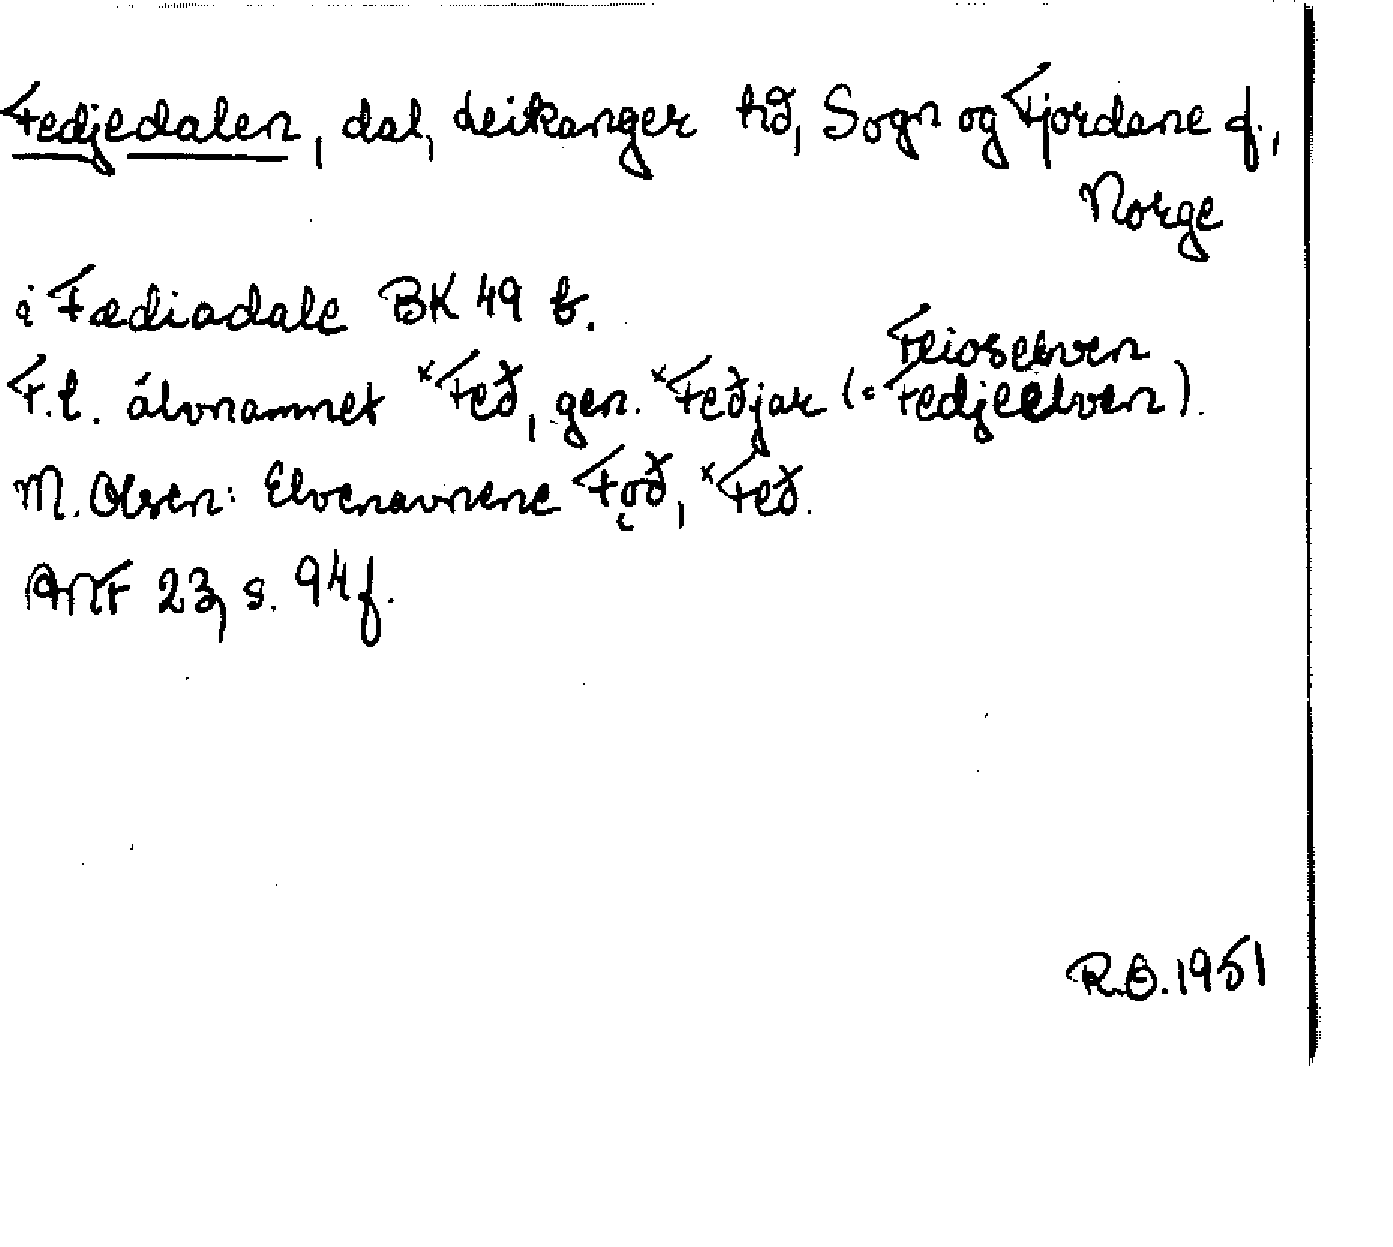 Fedjedalen, dal, Leikanger hd, Sogn og Fjordane f.,
Norge
i Fædiadale BK 49 b.
Feioselven
F.l. älvnamnet *Feð, gen. *Feðjar (= Fedjeelven).
M. Olsen: Elvenavnene Fǫð, *Feð.
ANF 23, s. 94 f.
R.O. 1951